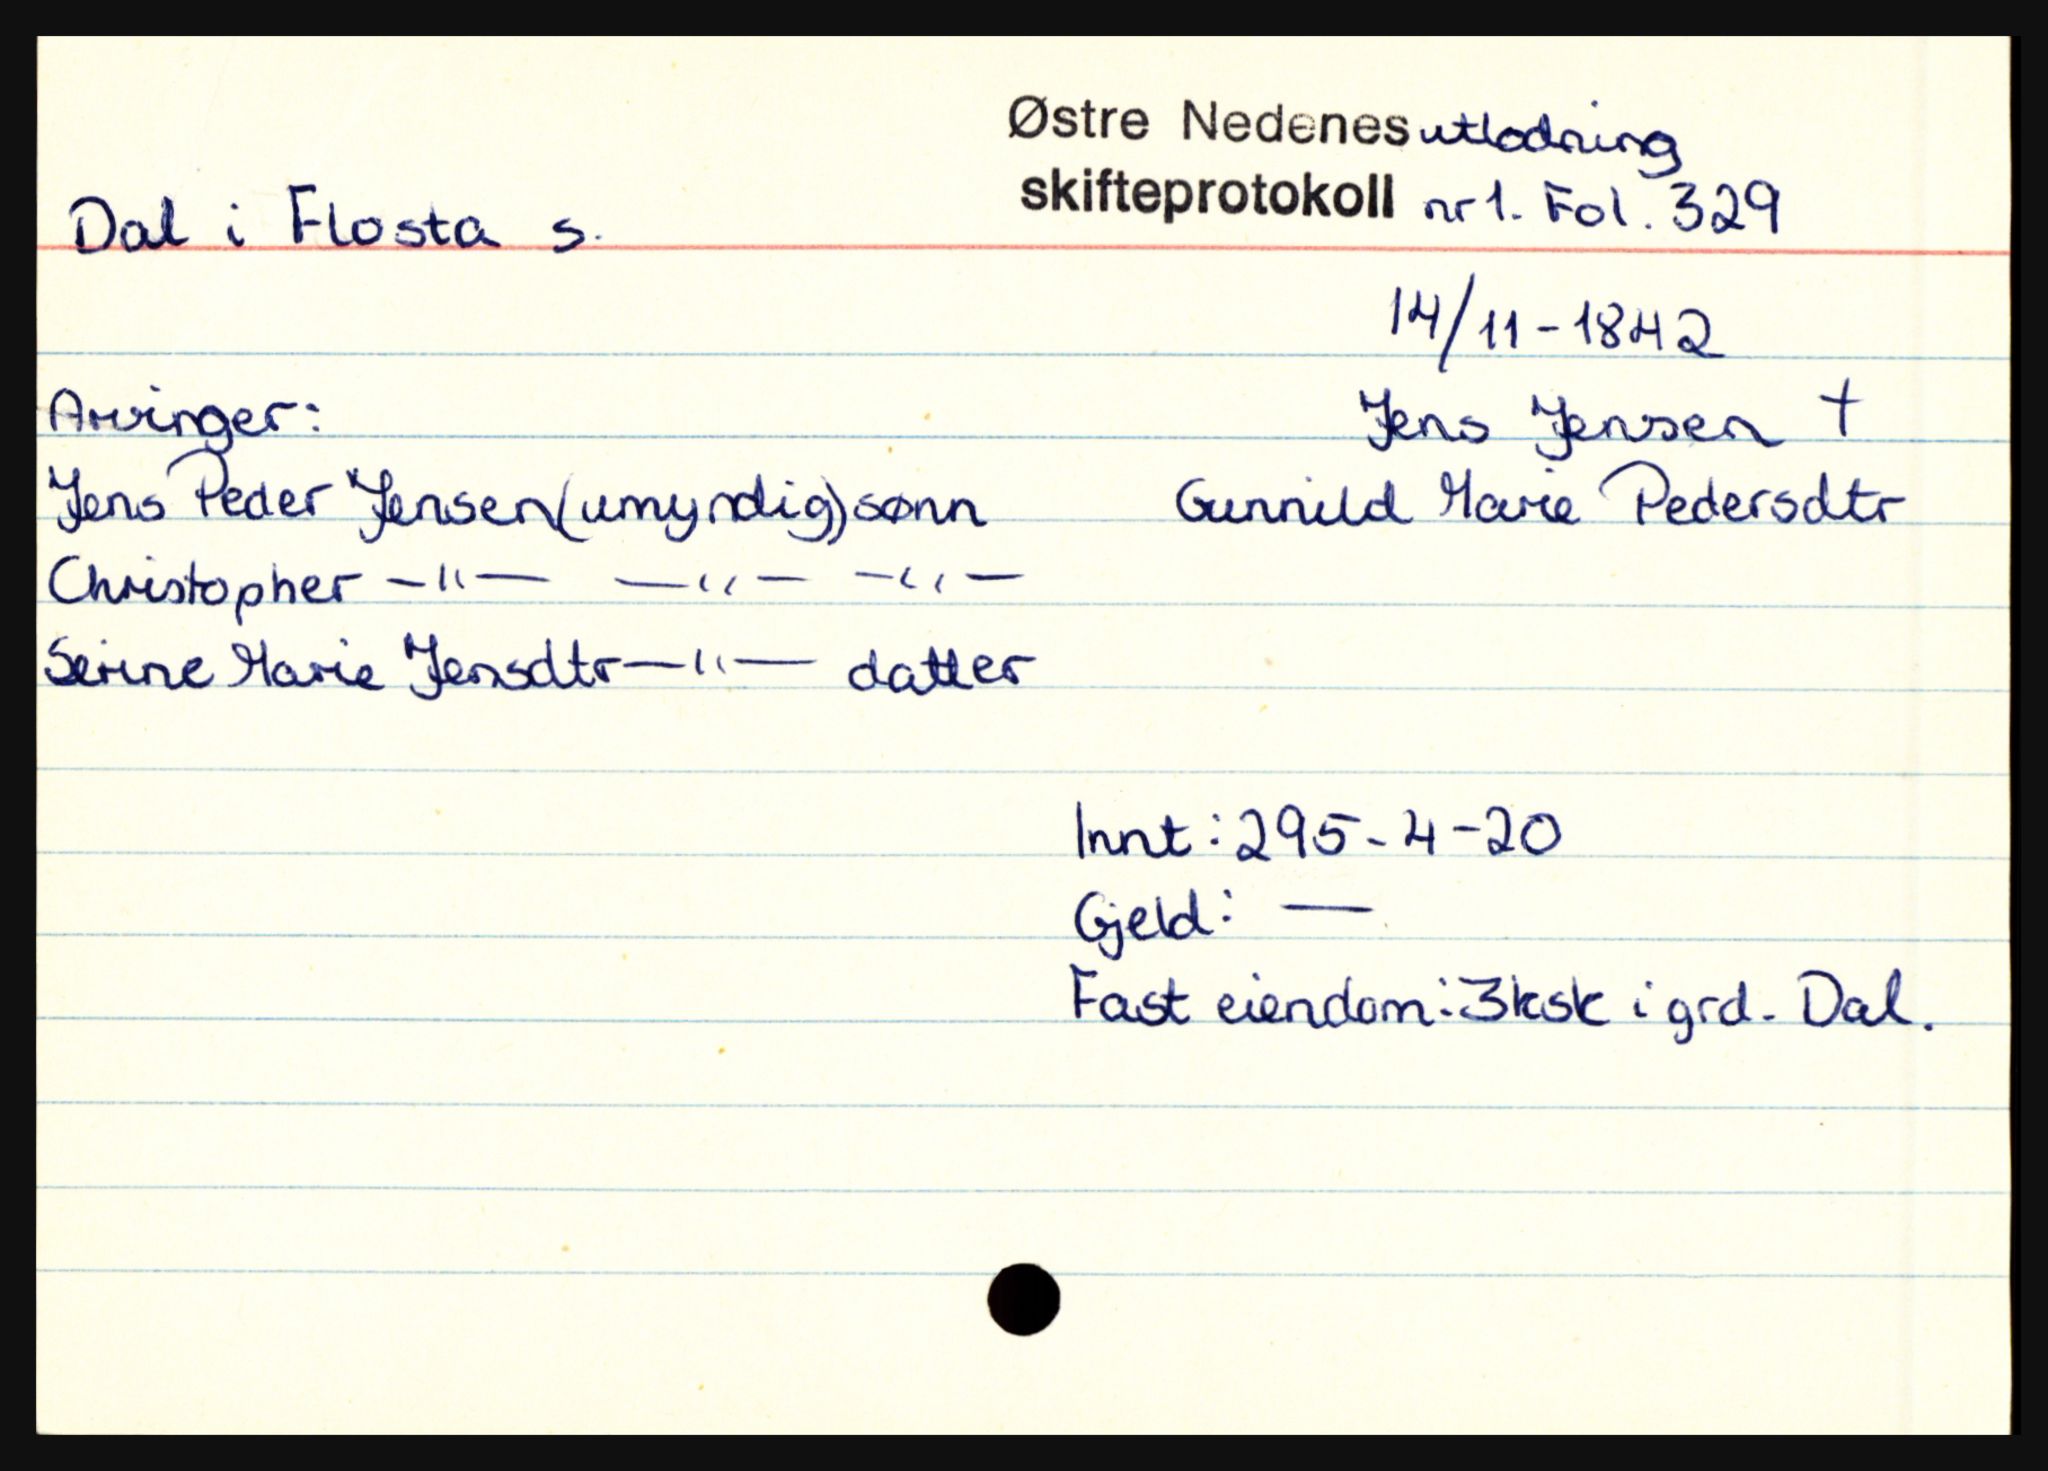 Østre Nedenes utlodning
skifteprotokoll nr 1. Fol. 329
Dal i Flosta s.
14/11-1842
Arvinger:
Jens Jensen †
Jens Peder Jensen (umyndig) sønn
Gunnild Marie Pedersdtr
Christopher —"— —"— —"—
Serine Marie Jensdtr —"— datter
Innt: 295-4-20
Gjeld: —
Fast eiendom: 3ksk i grd. Dal.